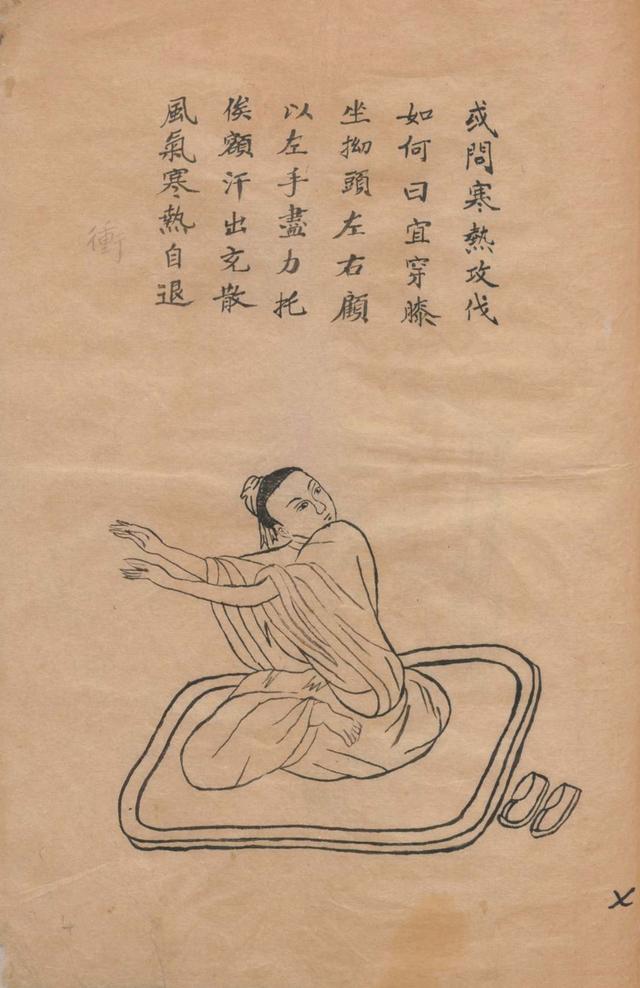 或問寒熱攻伐
如何曰宜穿膝
坐拗頭左右顧
以左手盡力托
俟額汗出充散
風氣寒熱自退
衝
x